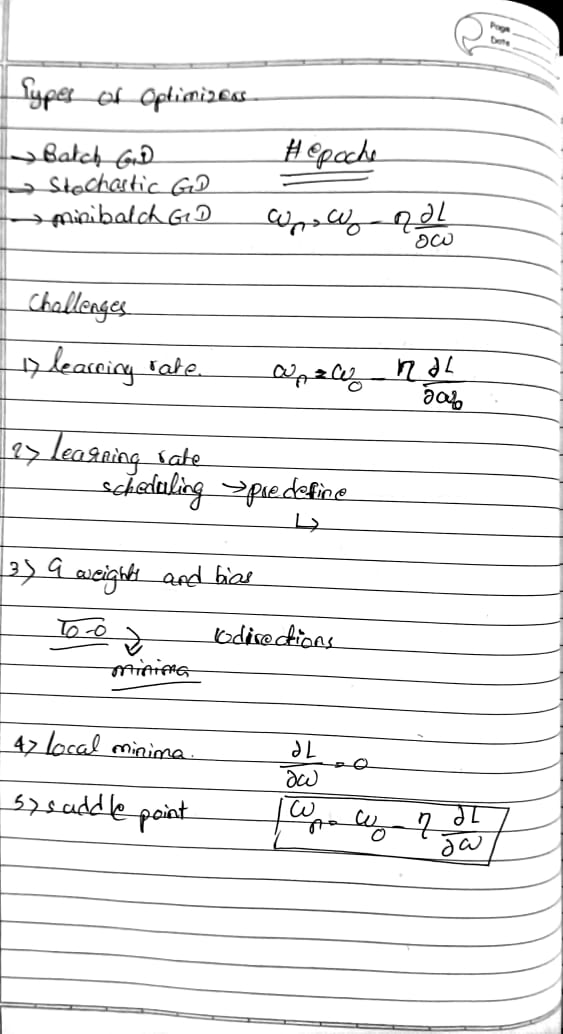 Page
Date
Types of Optimizers
→ Batch GD
# epochs
→ Stochastic GD
→ minibatch GD ωn = ω0 - η ∂L/∂ω
Challenges
1> learning rate. ωn = ω0 - η ∂L/∂ω0
2> learning rate
scheduling → predefine
↳
3> 9 weights and bias
10-D 10 directions
minima
4> local minima. ∂L/∂ω = 0
5> saddle point ωn = ω0 - η ∂L/∂ω